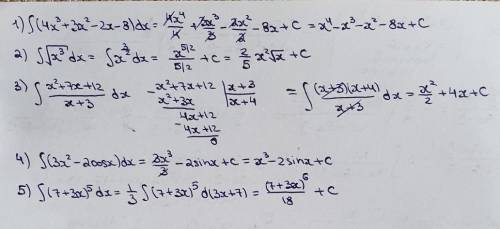 1) ∫(4x³+3x²-2x-8)dx = 4x⁴/4 + 3x³/3 - 2x²/2 - 8x+C = x⁴-x³-x²-8x+C
2) ∫√x³ dx = ∫x^(3/2) dx = x^(5/2)/(5/2) + C = 2/5 x²√x + C
3) ∫ (x²+7x+12)/(x+3) dx   -x²+7x+12 | x+3   = ∫ (x+3)(x+4)/(x+3) dx = x²/2 + 4x + C
x²+3x | x+4
4x+12
-4x+12
0
4) ∫(3x²-2cosx)dx = 3x³/3 - 2sinx+C = x³-2sinx+C
5) ∫(7+3x)⁵dx = 1/3 ∫(7+3x)⁵ d(3x+7) = (7+3x)⁶/18 + C